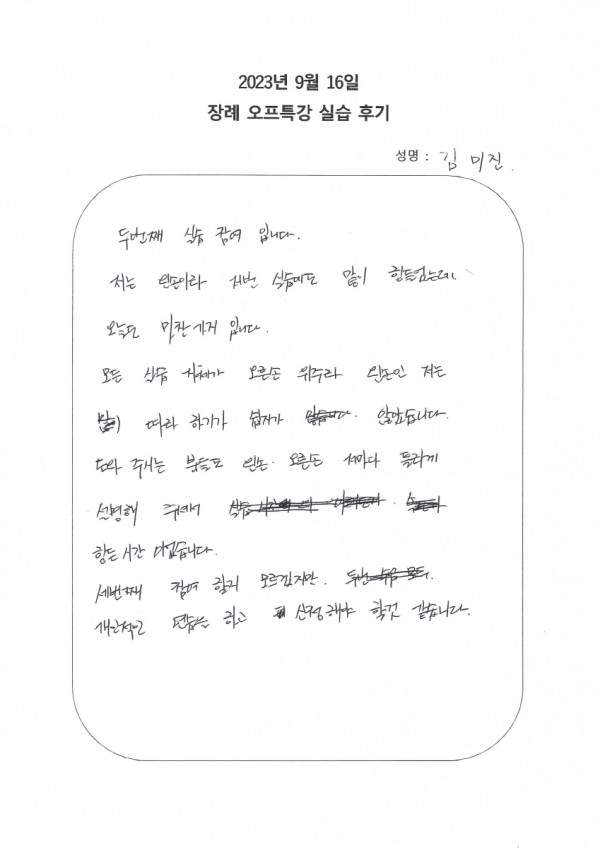 2023년 9월 16일
장례 오프특강 실습 후기
성명 : 김 미진
두번째 실습 참여 입니다.
저는 왼손이라 저번 실습에도 많이 힘들었는데.
오늘도 마찬가지 입니다.
모든 실습 자체가 오른손 위주라 왼손인 저는
따라 하기가 쉽지가 않았습니다.
도와 주시는 분들도 왼손. 오른손 저마다 틀리게
설명해 주셔서
힘든 시간 이었습니다.
세번째 참여 할지 모르겠지만.
개인적인 연습을 하고 신청해야 할것 같습니다.